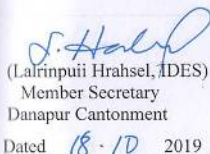 (Lalrinpuii Hrahsel, IDES)
Member Secretary
Danapur Cantonment
Dated 18 · 10 2019